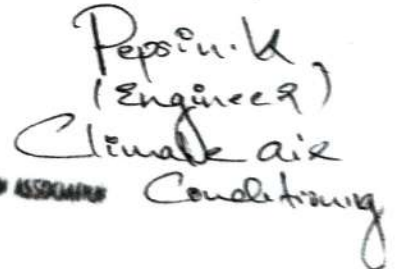 Pepsin.K
(Engineer)
Climate air
Conditioning